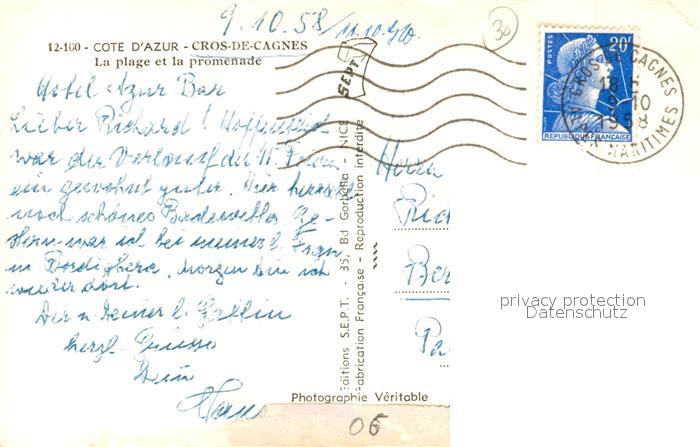 9.10.58/11.10.
30
12-160 - COTE D'AZUR - CROS-DE-CAGNES
La plage et la promenade
SEPT
Hotel Azur Bar
Lieber Richard! Hoffentlich
war der Verlauf der
ein gewohnt guter. Hier herrscht
noch schönes Badewetter. Ge-
stern war ich bei meiner l. Frau
in Bordighera. Morgen bin ich
wieder dort.
Dir u. Deiner l. Gattin
herzl. Grüsse
Dein
Hans
Editions S.E.P.T. - 35, Bd Gorbella - NICE
Fabrication Française - Reproduction interdite
Photographie Véritable
POSTES
20F
REPUBLIQUE FRANÇAISE
CROS-DE-CAGNES
18 H
9-10
1958
MARITIMES
Herrn
privacy protection
Datenschutz
06